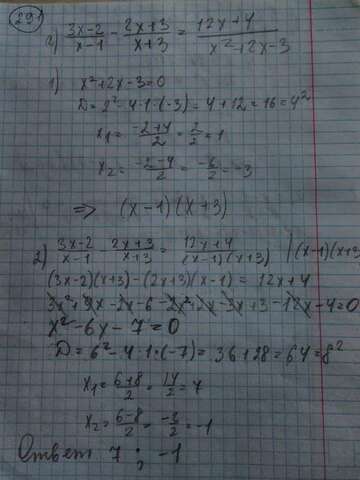 291
2) (3x-2)/(x-1) - (2x+3)/(x+3) = (12x+4)/(x²+2x-3)
1) x²+2x-3=0
D=2²-4·1·(-3)=4+12=16=4²
x₁=(-2+4)/2=2/2=1
x₂=(-2-4)/2=-6/2=-3
=> (x-1)(x+3)
2) (3x-2)/(x-1) (2x+3)/(x+3) = (12x+4)/((x-1)(x+3)) |(x-1)(x+3
(3x-2)(x+3)-(2x+3)(x-1)=12x+4
3x²+9x-2x-6-2x²+2x-3x+3-12x-4=0
x²-6x-7=0
D=6²-4·1·(-7)=36+28=64=8²
x₁=(6+8)/2=14/2=7
x₂=(6-8)/2=-2/2=-1
Ответ 7; -1